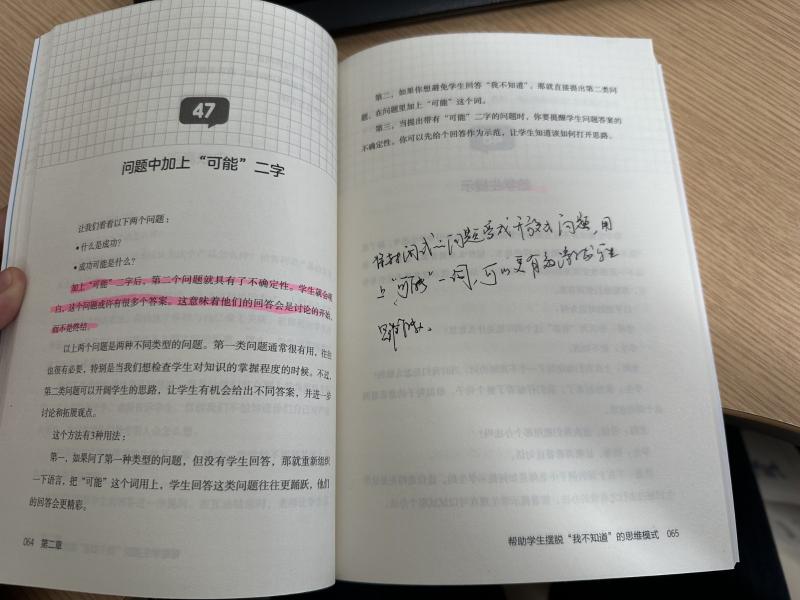 47
问题中加上“可能”二字
让我们看看以下两个问题：
• 什么是成功？
• 成功可能是什么？
加上“可能”二字后，第二个问题就具有了不确定性。学生就会明
白，这个问题或许有很多个答案。这意味着他们的回答会是讨论的开始，
而不是终结。
以上两个问题是两种不同类型的问题。第一类问题通常很有用，往往
也很有必要，特别是当我们想检查学生对知识的掌握程度的时候。不过，
第二类问题可以开阔学生的思路，让学生有机会给出不同答案，并进一步
讨论和拓展观点。
这个方法有3种用法：
第一，如果问了第一种类型的问题，但没有学生回答，那就重新组织
一下语言，把“可能”这个词用上，学生回答这类问题往往更踊跃，他们
的回答会更精彩。
064 第二章
第二，如果你想避免学生回答“我不知道”，那就直接提出第二类问
题，在问题里加上“可能”这个词。
第三，当提出带有“可能”二字的问题时，你要提醒学生问题答案的
不确定性。你可以先给个回答作为示范，让学生知道该如何打开思路。
封闭式问题变成开放式问题，用
上“可能”一词，可以更有效激发学生
思维。
帮助学生摆脱“我不知道”的思维模式 065